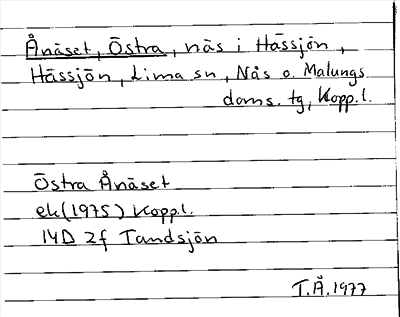 Ånäset, Östra, näs i Hässjön,
Hässjön, Lima sn, Nås o. Malungs
doms. tg, Kopp.l.
Östra Ånäset
ek(1975) Kopp.l.
14D 2f Tandsjön
T.Å.1977